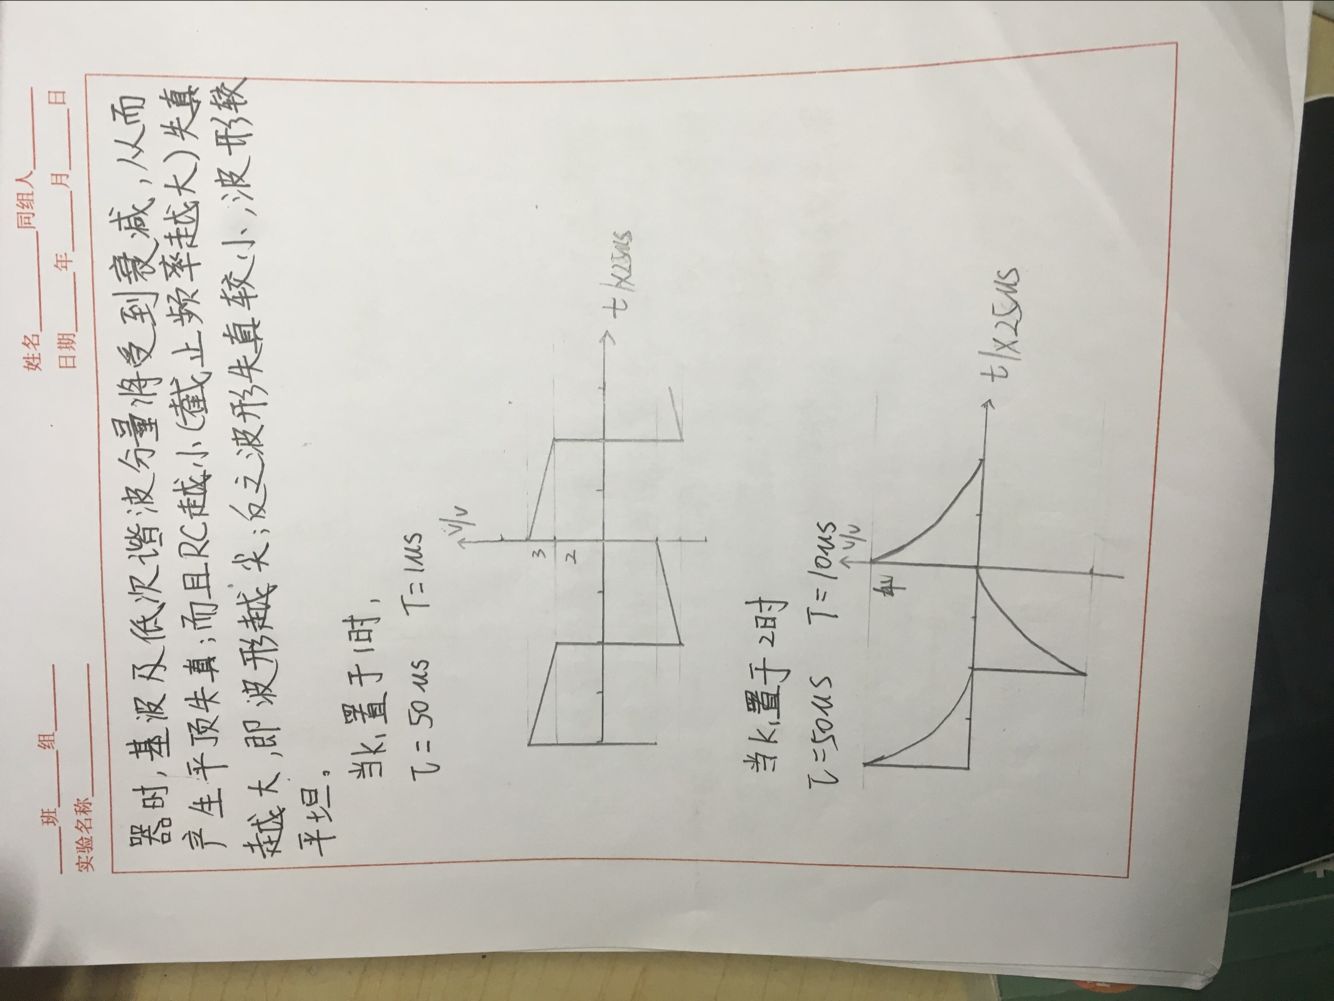 班 组
姓名 同组人
实验名称
日期 年 月 日
器时,基波及低次谐波分量将受到衰减,从而
产生平顶失真;而且RC越小(截止频率越大)失真
越大,即波形越尖;反之波形失真较小,波形较
平坦。
当K₁置于1时,
τ=50μs T=1μs
V/v
3
2
t/×25μs
当K₁置于2时
τ=50μs T=10μs
V/v
4
t/×25μs